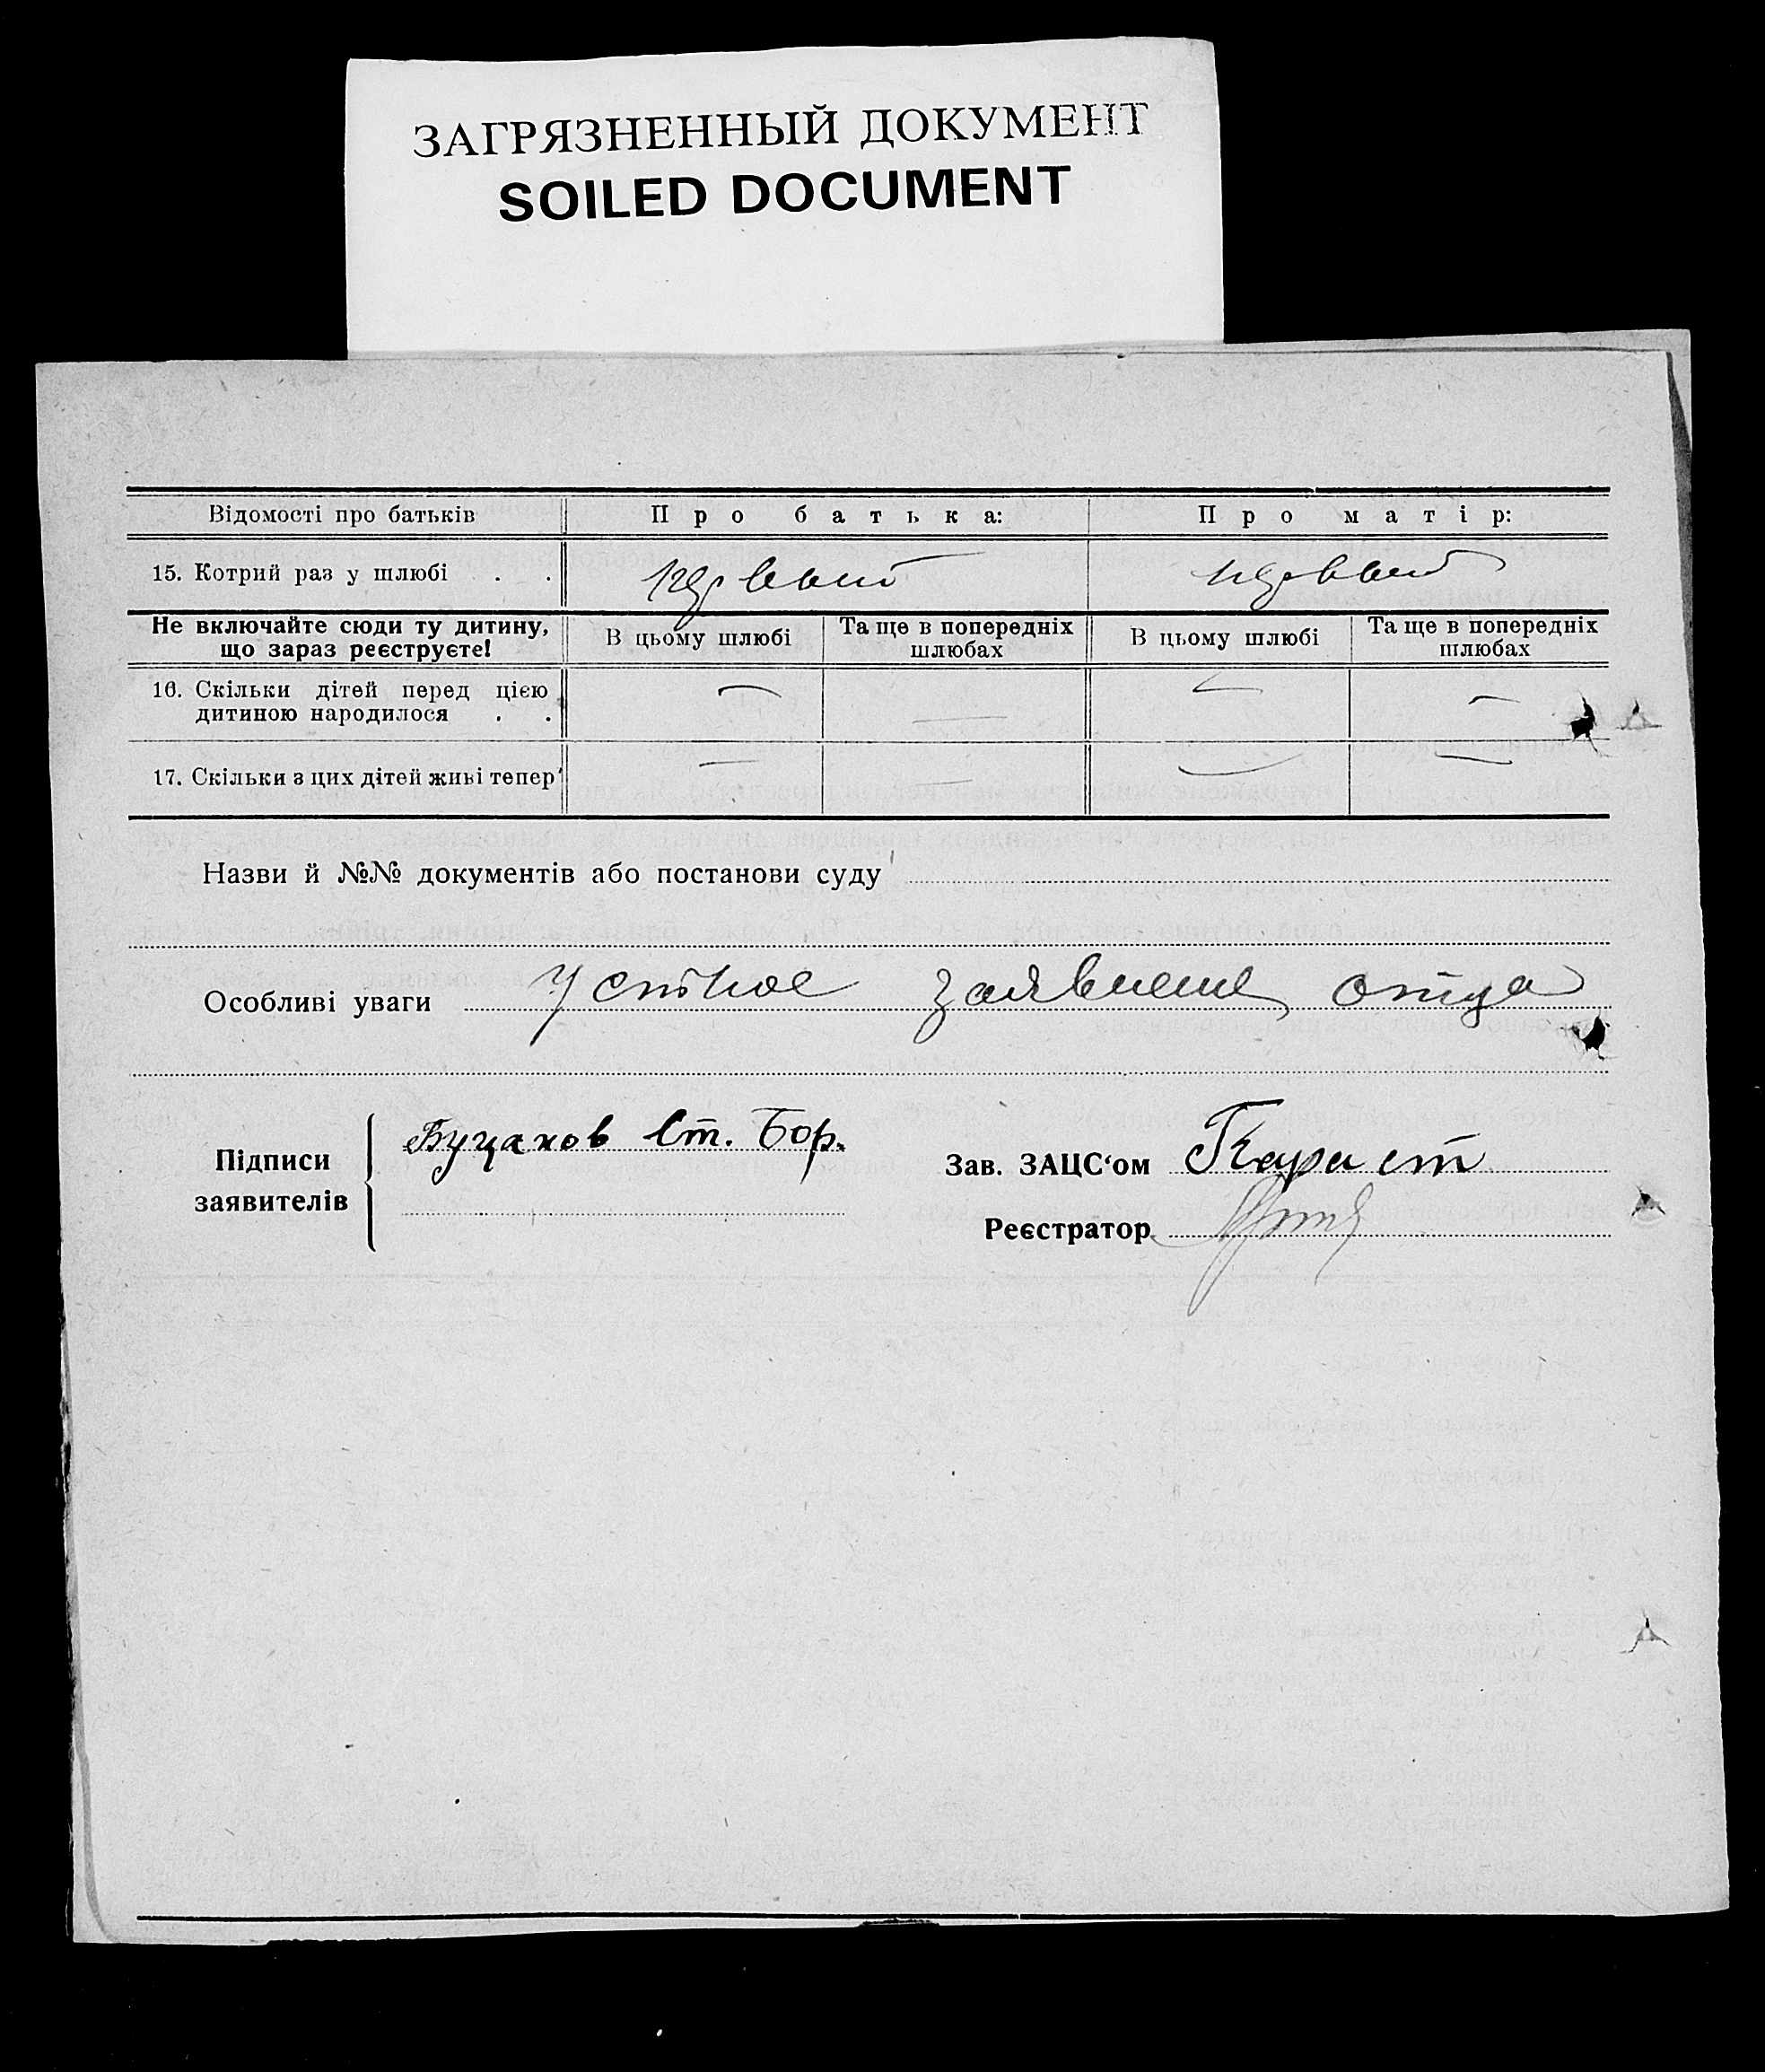 ЗАГРЯЗНЕННЫЙ ДОКУМЕНТ
SOILED DOCUMENT
Відомості про батьків Про батька: Про матір:
15. Котрий раз у шлюбі . . первый первый
Не включайте сюди ту дитину, що зараз реєструєте! В цьому шлюбі Та ще в попередніх шлюбах В цьому шлюбі Та ще в попередніх шлюбах
16. Скільки дітей перед цією дитиною народилося . . — — — —
17. Скільки з цих дітей живі тепер — — — —
Назви й №№ документів або постанови суду
Особливі уваги Устное заявление отца
Підписи заявителів Буцахов Ст. Бор.
Зав. ЗАЦС‘ом
Реєстратор